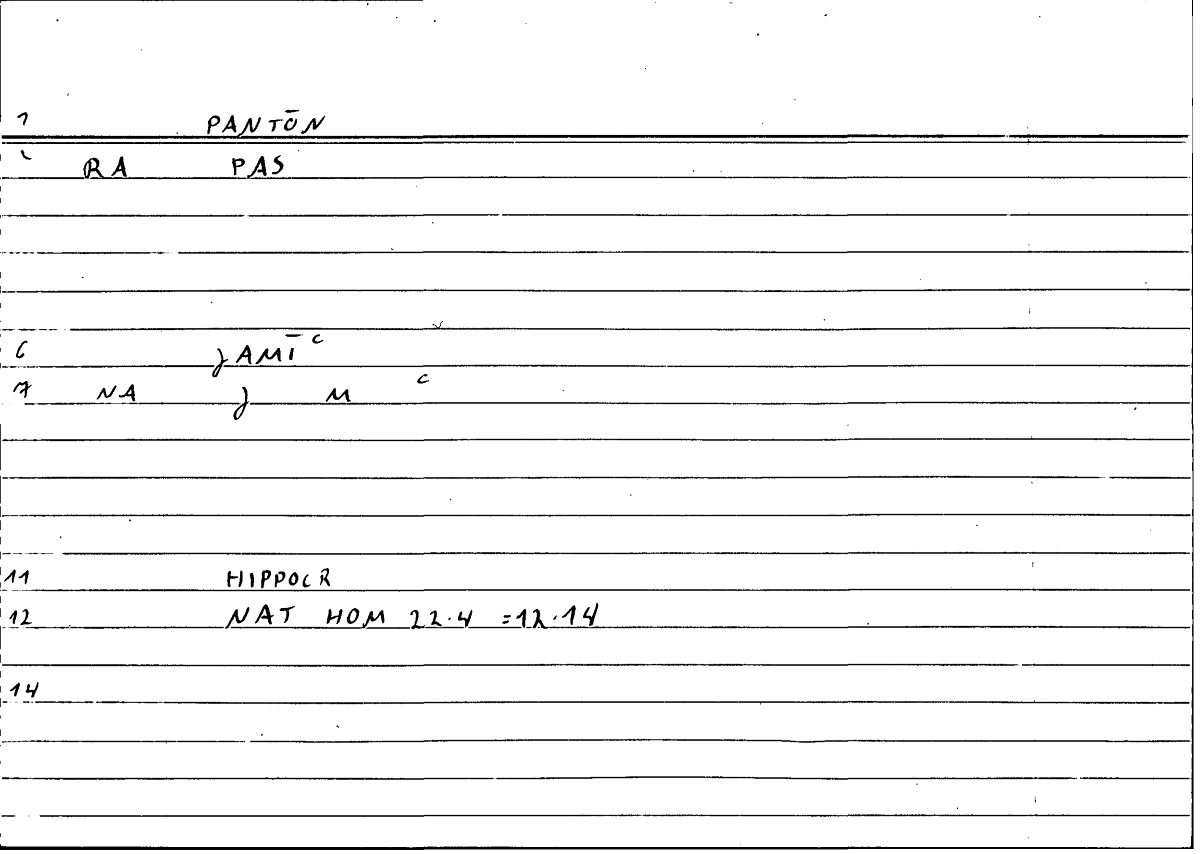 1 PANTŌN
RA PAS
6 jAMĪʿ
7 NA j M ʿ
11 HIPPOCR
12 NAT HOM 22.4 =12.14
14